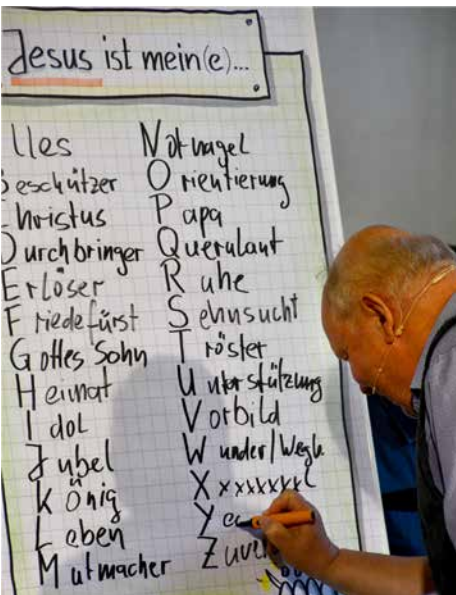 Jesus ist mein(e)...
lles
Beschützer
Christus
Durchbringer
Erlöser
Friedefürst
Gottes Sohn
Heimat
Idol
Jubel
König
Leben
Mutmacher
Notnagel
Orientierung
Papa
Querulant
Ruhe
Sehnsucht
Tröster
Unterstützung
Vorbild
Wunder/Wegb.
Xxxxxxxx
Y
Zuver